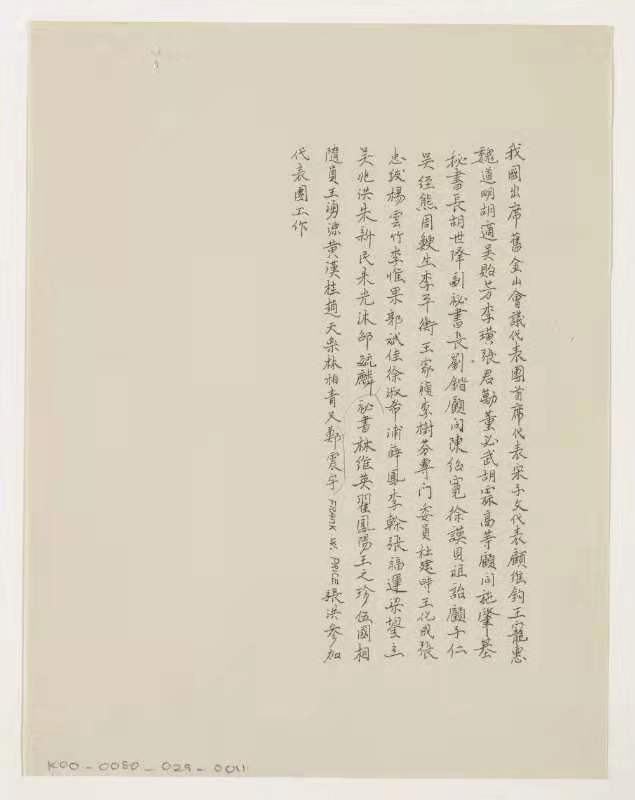 我國出席舊金山會議代表團首席代表宋子文代表顧維鈞王寵惠
魏道明胡適吳貽芳李璜張君勱董必武胡霖高等顧問施肇基
秘書長胡世澤副祕書長劉鍇顧問陳紹寬徐謨貝祖詒顧子仁
吳經熊周鯁生李平衡王家楨李樹芬專门委員杜建時王化成張
忠紱楊雲竹李惟果郭斌佳徐淑希浦薛鳳李榦張福運梁鋆立
吳兆洪朱新民朱光沐邵毓麟祕書林維英翟鳳陽王之珍伍國相
隨員王湧源黃漢柱趙天樂林柏青又鄭震宇FRANK W. PRICE張洪參加
代表團工作
K00-0080-029-0011